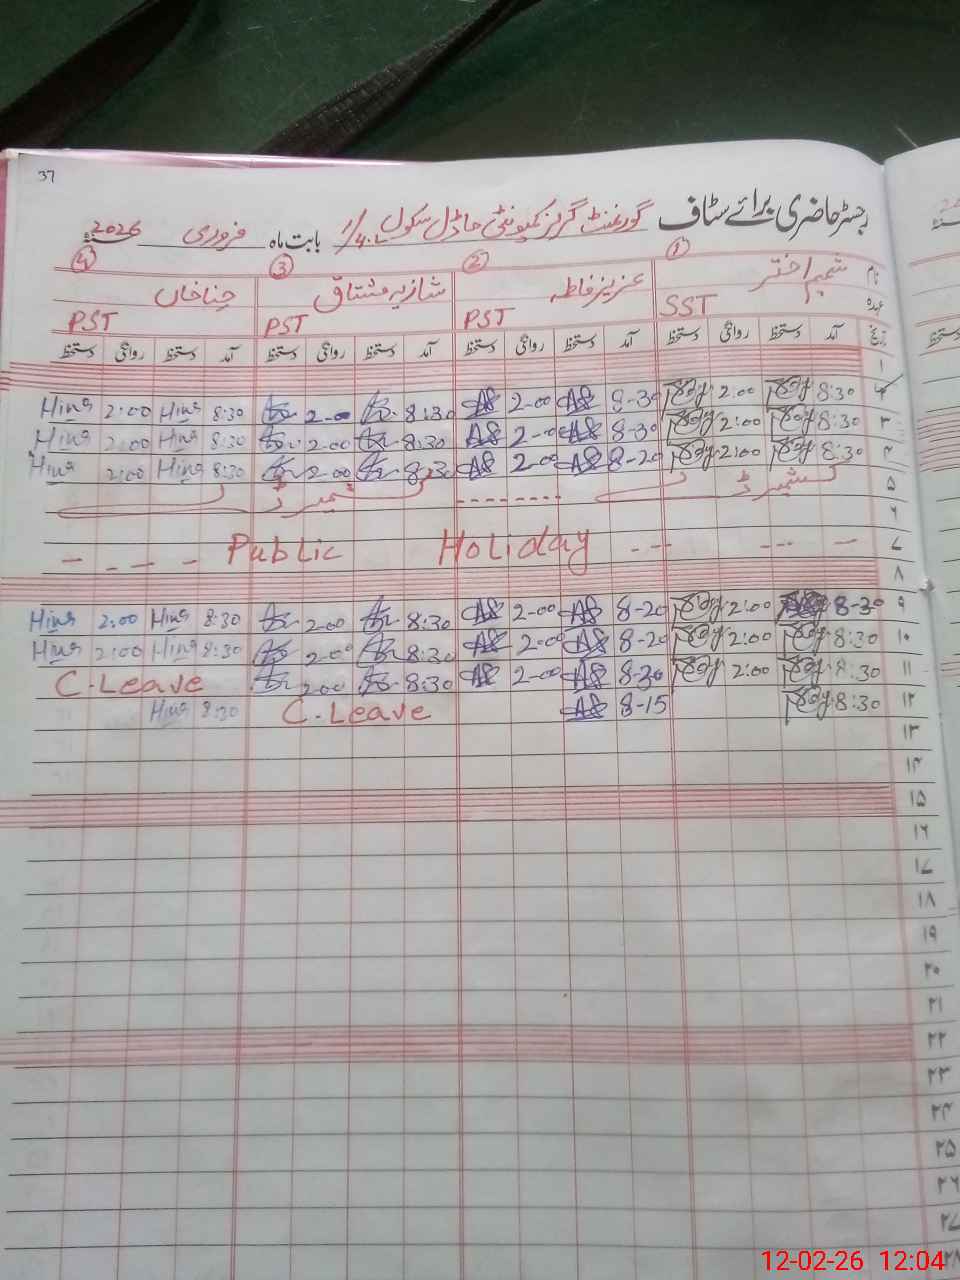 37
رجسٹر حاضری برائے سٹاف گورنمنٹ گرلز کمیونٹی ماڈل سکول 1/4.L بابت ماہ فروری سنہ 2026
① ② ③ ④
نام شمیم اختر عزیز فاطمہ شازیہ مشتاق حنا خان
عہدہ SST PST PST PST
تاریخ آمد دستخط روانگی دستخط آمد دستخط روانگی دستخط آمد دستخط روانگی دستخط آمد دستخط روانگی دستخط
۱
۲ 8:30 2:00 8-30 2-00 8:30 2-00 8:30 Hina 2:00 Hina
۳ 8:30 2:00 8-30 2-00 8:30 2-00 8:30 Hina 2:00 Hina
۴ 8:30 2:00 8-20 2-00 8:30 2-00 8:30 Hina 2:00 Hina
۵
۶
۷ Public Holiday
۸
۹ 8-30 2:00 8-20 2-00 8:30 2-00 8:30 Hina 2:00 Hina
۱۰ 8:30 2:00 8-20 2-00 8:30 2-00 8:30 Hina 2:00 Hina
۱۱ 8:30 2:00 8-30 2-00 8:30 2-00 C.Leave
۱۲ 8:30 8-15 C.Leave 8:30 Hina
۱۳
۱۴
۱۵
۱۶
۱۷
۱۸
۱۹
۲۰
۲۱
۲۲
۲۳
۲۴
۲۵
۲۶
۲۷
۲۸
12-02-26 12:04